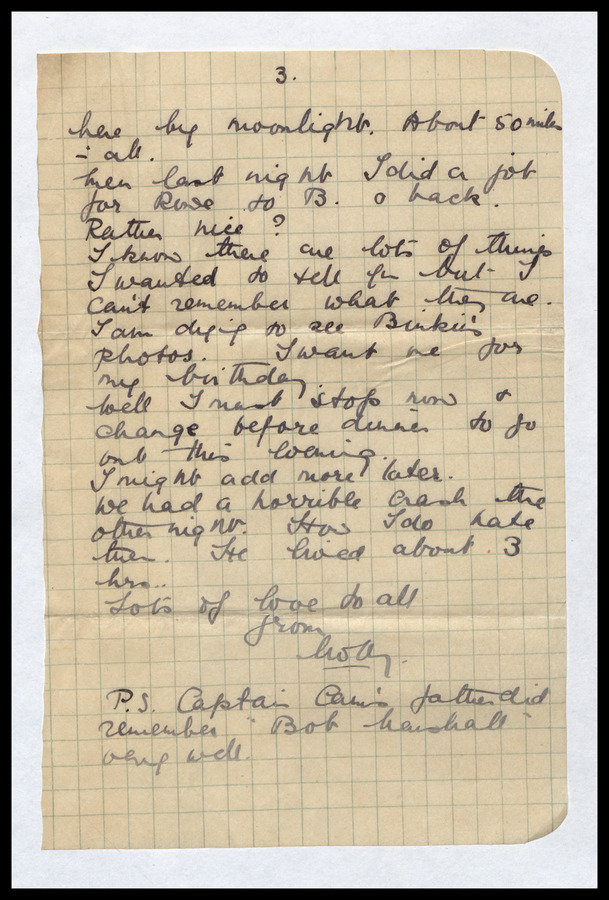 3.
here by moonlight. About 50 miles
in all.
then last night I did a job
for Rowe to B. & back.
Rather nice?
I know there are lots of things
I wanted to tell you but I
can't remember what they are.
I am dying to see Binkie's
photos. I want one for
my birthday.
Well I must stop now &
change before dinner to go
out this evening.
I might add more later.
We had a horrible crash the
other night. How I do hate
them. He lived about 3
hrs..
Lots of love to all
from
Molly.
P.S. Captain father did
remember "Bob Marshall"
very well.